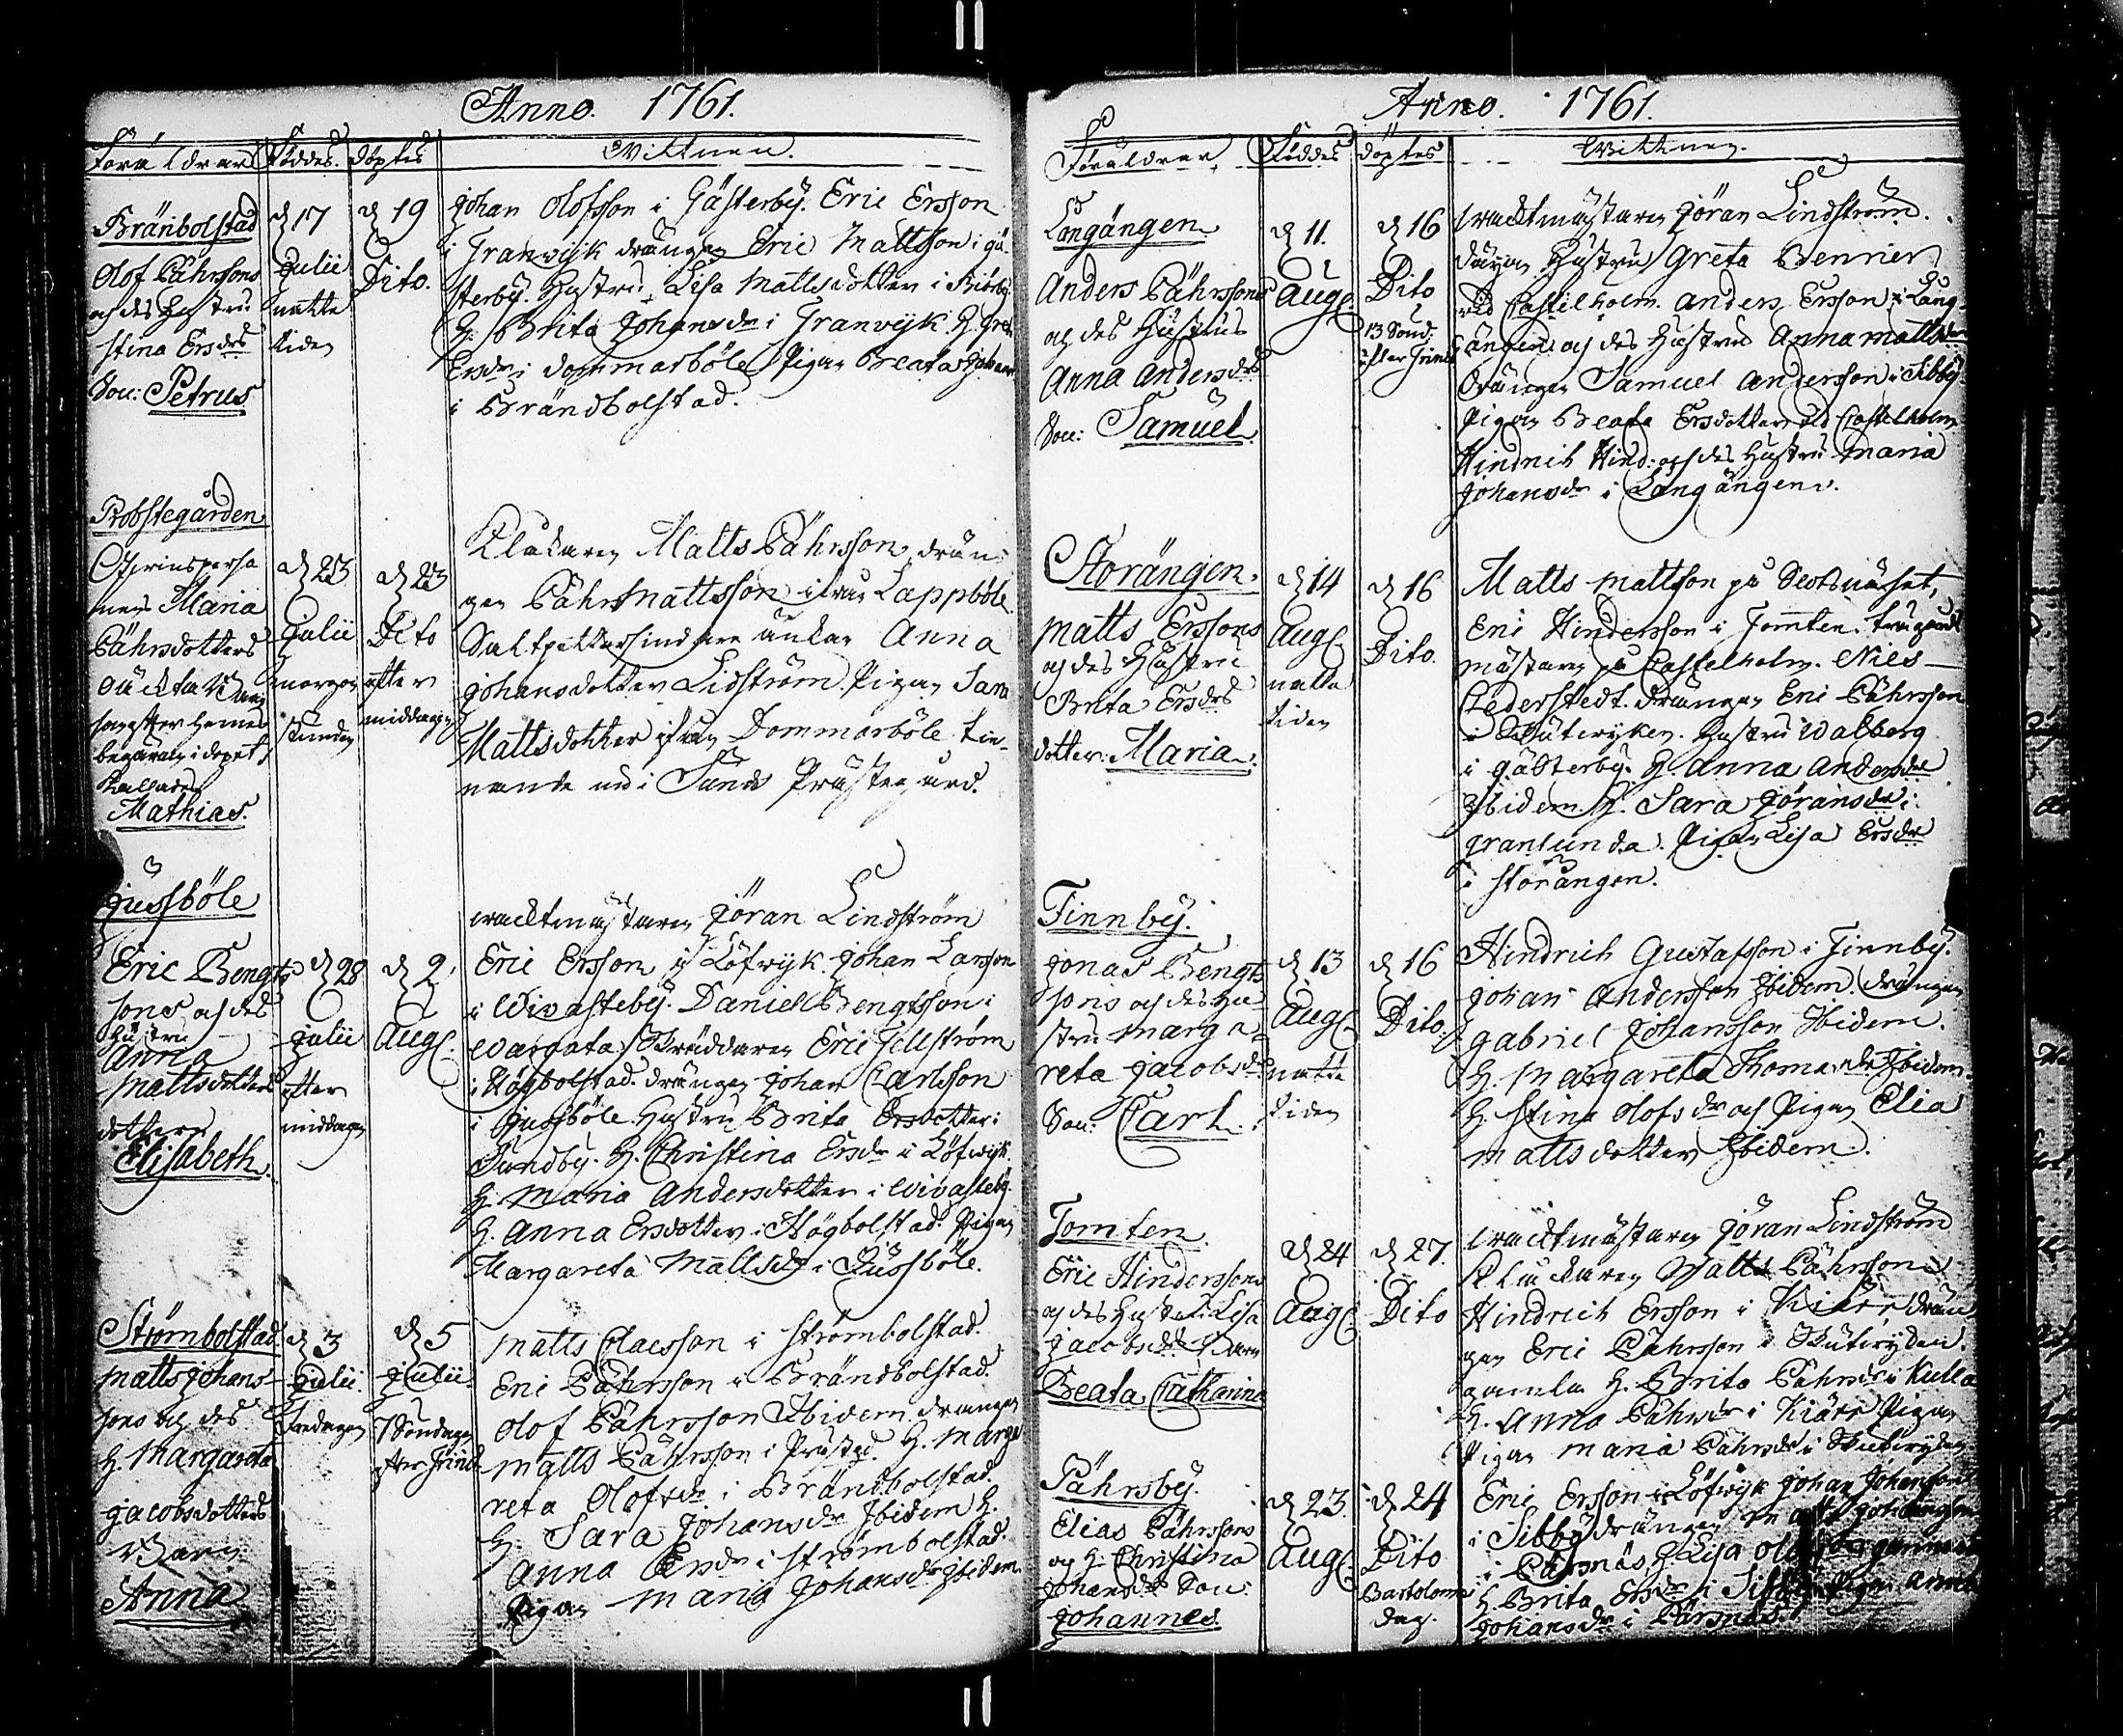 Anno. 1761.
Föräldrar Föddes. Döptes Wittnen.
Bränbolstad
Olof Pährsons
och des Hustru
Stina Ersdrs
Son: Petrus
d 17
Julii
natte
tiden
d 19
Dito.
Johan Olofsson i Gästerby. Eric Ersson
i Tranvijk drängen Eric Mattson i gä-
sterby. Hustru Lisa Mattsdotter i
H. Brita Johansdr i Tranvijk H. Greta
Ersdr i dommarböle Pigan Beata
i Brändbolstad.
Probstegården
Maria
Pährsdotters
oäckta Barn
begäran i dopet
kallades
Mathias.
d 23
Julii
morgon
stunden
d 23
Dito
efter
middagen
Klåckaren Matts Pährsson, drän-
gen Pähr Mattsson ifrån Lappböle
Saltpettersjudare änkan Anna
Johansdotter Lidström. Pigan Sara
Mattsdotter ifrån Dommarböle tie-
nande nu i Sunds Prästegård.
Jussböle
Eric Bengts
sons och des
Hustru
Anna
Mattsdotters
dotter
Elisabeth.
d 28
Julii
efter
middagen
d 2
Aug.
wacktmästaren Jöran Lindström
Eric Ersson i Löfwijk. Johan Larsson
i Wivasteby. Daniel Bengtsson i
Wargata. Skräddaren Eric Fellström
i Högbolstad. drängen Johan Carlsson
i Jussböle. Hustru Brita Ersdotter i
Sundby. H. Christina Ersdr i Löfwijk.
H. Maria Andersdotter i Wivasteby.
H. Anna Ersdotter i Högbolstad. Pigan
Margareta Mattsdr i Jussböle.
Strömbolstad.
Matts Johans-
sons och des
H. Margareta
Jacobsdotters
Barn
Anna
d 3
Julii.
Fredagen
d 5
Julii.
7 Söndagen
efter Trinit.
Matts Claesson i Strömbolstad.
Eric Pährsson i Brändbolstad.
Olof Pährsson Ibidem drängen
Matts Pährsson i Prästgd. H. Marga
reta Olofsdr i Brändbolstad.
H. Sara Johansdr Ibidem H.
Anna Ersdr i Strömbolstad.
Pigan Maria Johansdr Ibidem.
Anno. 1761.
Föräldrar Föddes Döptes Wittnen.
Långängen
Anders Pährssons
och des Hustrus
Anna Andersdrs
Son: Samuel.
d 11.
Aug.
d 16
Dito
13 Sönd.
efter Trinit
wacktmästaren Jöran Lindström.
Hustru Greta Benner
vid Castelholm. Anders Ersson i Lång-
ängen och des Hustru Anna Mattsdr
Drängen Samuel Andersson i Sibby
Pigan Beata Ersdotter vid Castelholm
Hindrich Hind: och des Hustru Maria
Johansdr i Långängen.
Storängen.
Matts Erssons
och des Hustru
Brita Ersdrs
dotter: Maria.
d 14
Aug.
natte
tiden
d 16
Dito.
Matts Mattson på
Eric Hindersson i Tomten. trägårds
mästaren på Castelholm. Niels
Cederstedt. drängen Eric Pährsson
i Skutviken. Hustru Walborg
i gästerby. H. Anna Andersdr
Ibidem H. Sara Jöransdr i
granlunda. Pigan Lisa Ersdr
i Storängen.
Finnby.
Jonas Bengts
sons och des Hu
stru Marga
reta Jacobsdr
Son: Carl.
d 13
Aug.
natte
tiden
d 16
Dito.
Hindrich Gustafsson i Finnby.
Johan Andersson Ibidem. drängen
Gabriel Johansson Ibidem.
H. Margareta Thomasdr Ibidem.
H. Stina Olofsdr och Pigan Elia
Mattsdotter Ibidem.
Tomten.
Eric Hinderssons
och des Hustru Lisa
Jacobsdrs Barn
Beata Catharina
d 24
Aug.
d 27.
Dito
wacktmästaren Jöran Lindström
Klåckaren Matts Pährsson
Hindrich Ersson i Kiärr drän
gen Eric Pährsson i Skutvyken.
gamla H. Brita Pährsdr i Kulla
H. Anna Pährsdr i Kiärr Pigan
Pigan Maria Pährsdr i Skutvyken
Pährsby.
Elias Pährssons
och H. Christina
Johansdrs Son:
Johannes.
d 23.
Aug.
d 24
Dito
Bartolomei
dag.
Eric Ersson i Löfwijk Johan Johansson
i Sibby drängen Johansson
i Pärsnäs H. Lisa
H. Brita Ersdr i Sibby Pigan Anna
Johansdr i Pärsnäs.